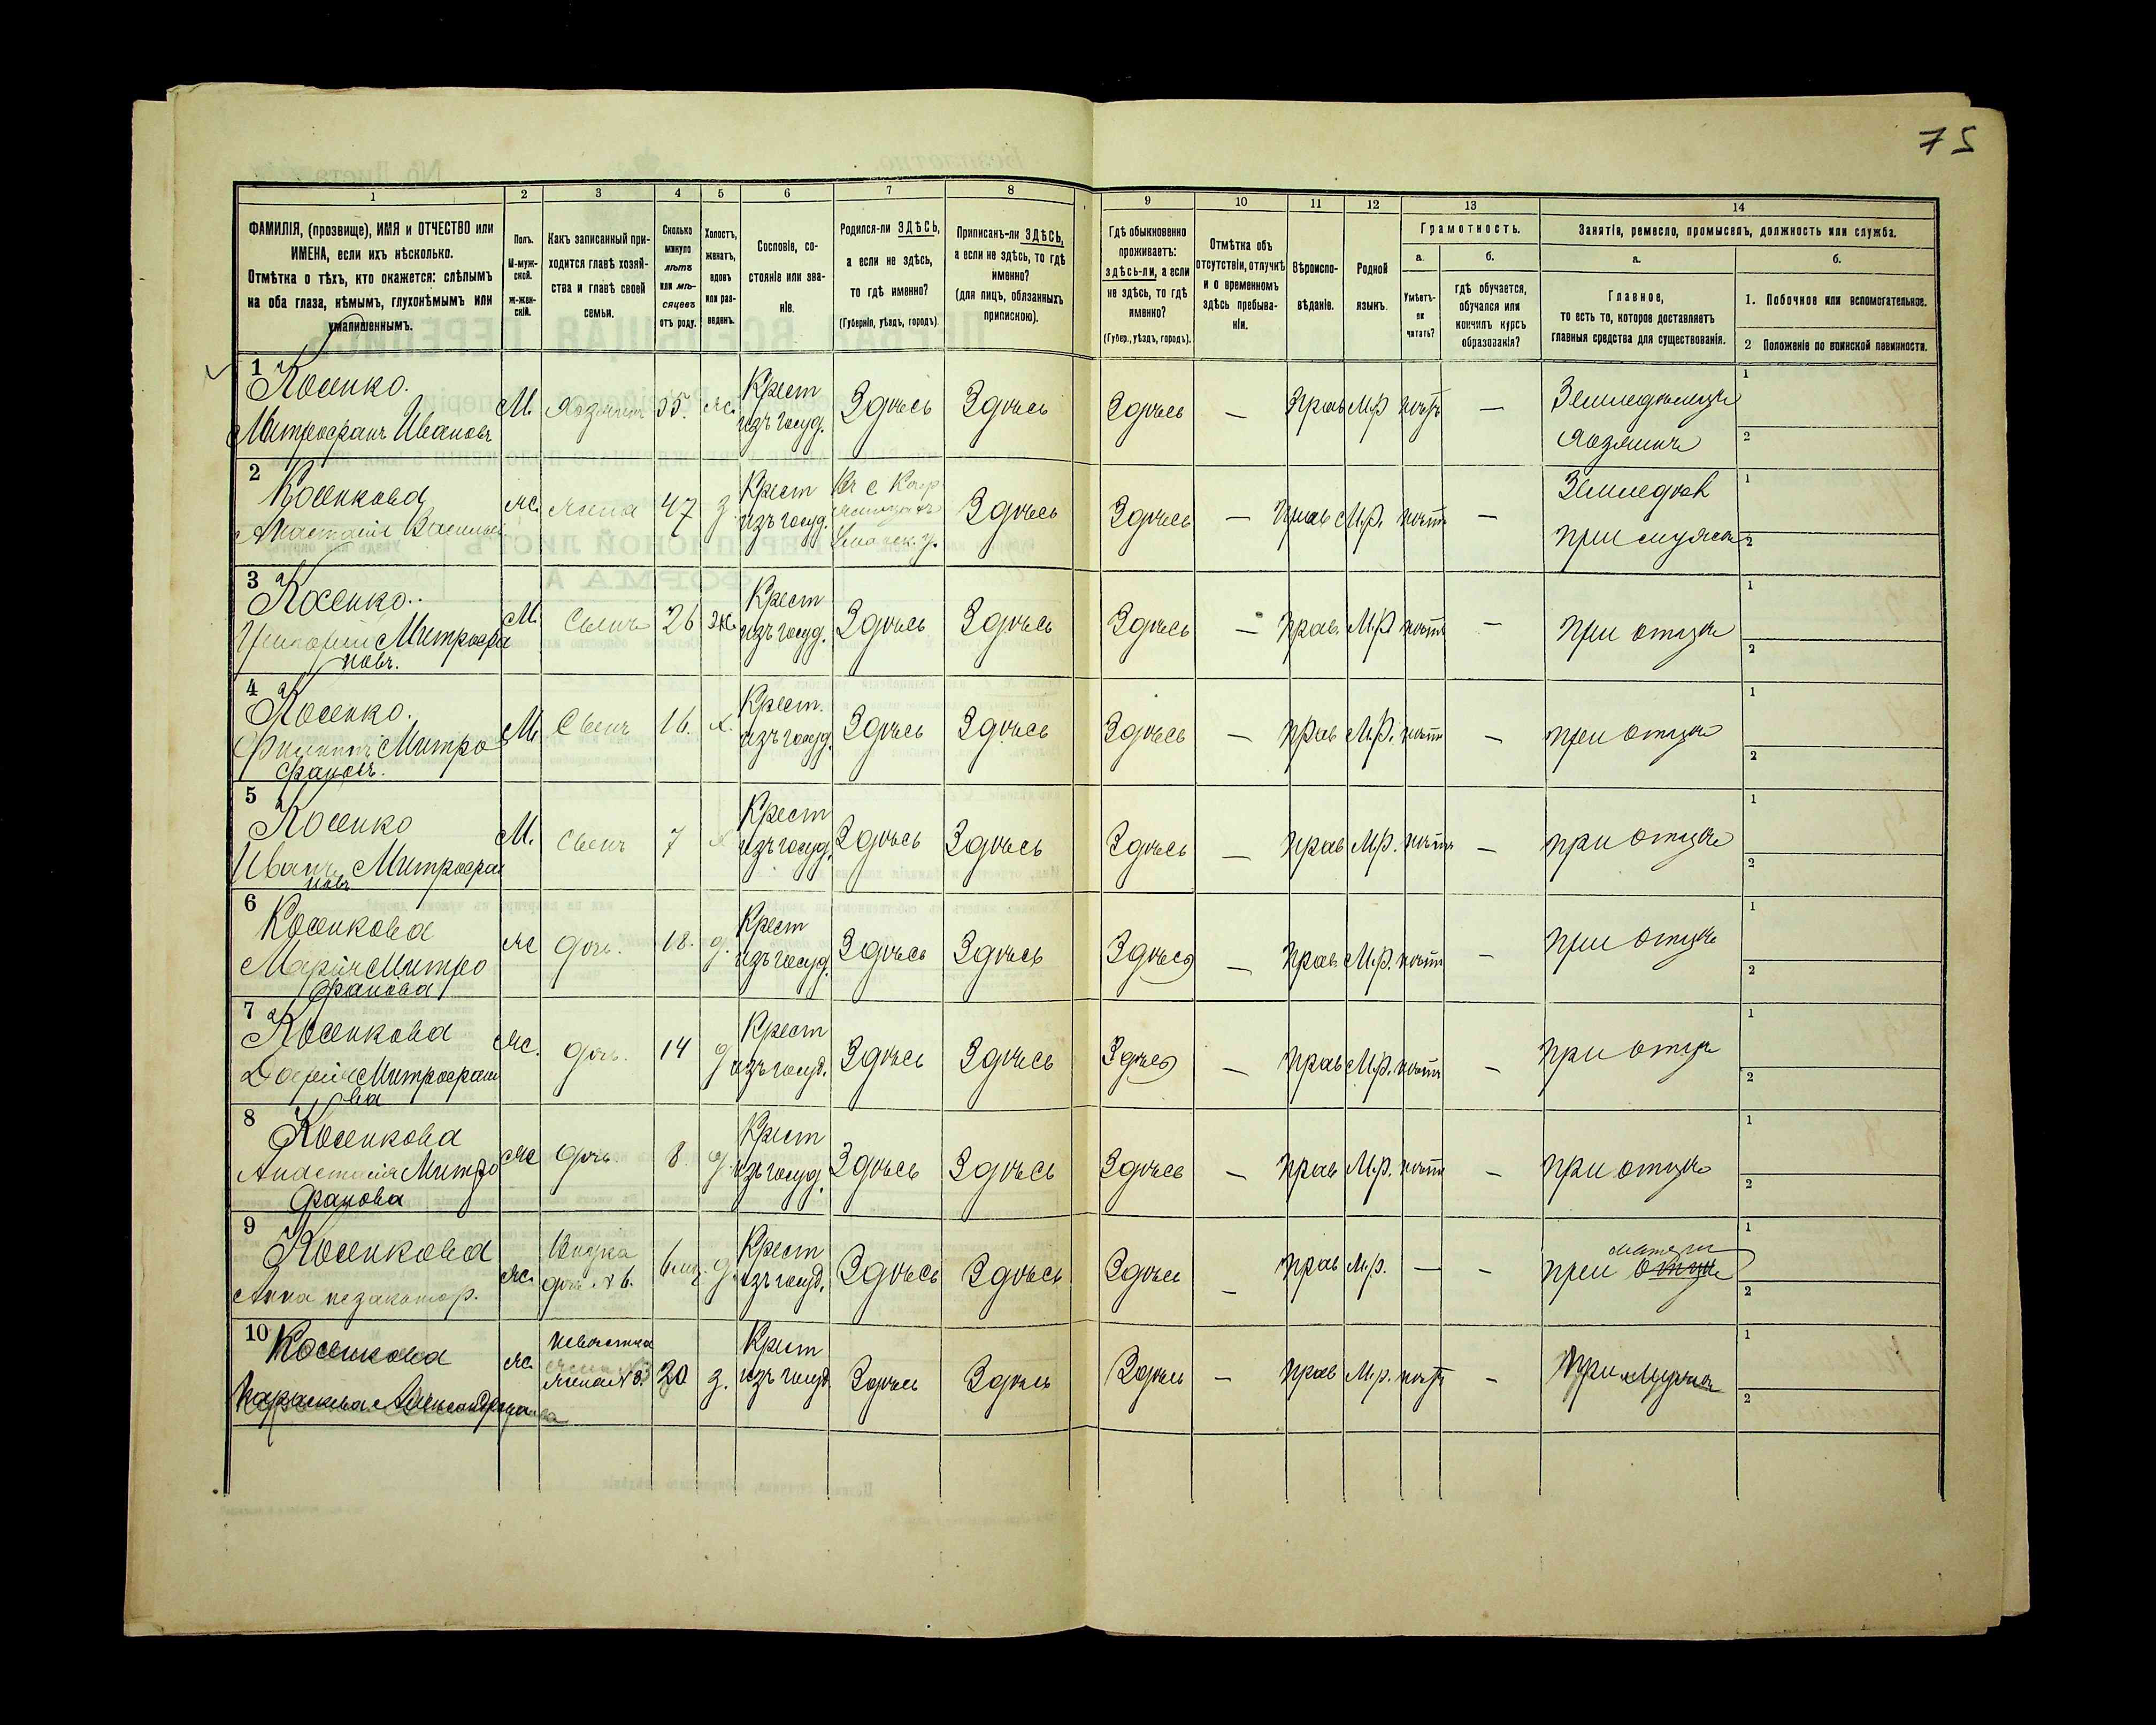 75
1 2 3 4 5 6 7 8 9 10 11 12 13 14
ФАМИЛІЯ, (прозвище), ИМЯ и ОТЧЕСТВО или
ИМЕНА, если ихъ нѣсколько.
Отмѣтка о тѣхъ, кто окажется: слѣпымъ
на оба глаза, нѣмымъ, глухонѣмымъ или
умалишеннымъ.
Полъ.
М-муж-
ской.
Ж-жен-
скій.
Какъ записанный при-
ходится главѣ хозяй-
ства и главѣ своей
семьи.
Сколько
минуло
лѣтъ
или мѣ-
сяцевъ
отъ роду.
Холостъ,
женатъ,
вдовъ
или раз-
веденъ.
Сословіе, со-
стояніе или зва-
ніе.
Родился-ли ЗДѢСЬ,
а если не здѣсь,
то гдѣ именно?
(Губернія, уѣздъ, городъ)
Приписанъ-ли ЗДѢСЬ,
а если не здѣсь, то гдѣ
именно?
(для лицъ, обязанныхъ
припискою).
Гдѣ обыкновенно
проживаетъ:
здѣсь-ли, а если
не здѣсь, то гдѣ
именно?
(Губер., уѣздъ, городъ).
Отмѣтка объ
отсутствіи, отлучкѣ
и о временномъ
здѣсь пребыва-
ніи.
Вѣроиспо-
вѣданіе.
Родной
языкъ.
Грамотность.
а.
Умѣетъ-
ли
читать?
б.
гдѣ обучается,
обучался или
кончилъ курсъ
образованія?
Занятія, ремесло, промыселъ, должность или служба.
а.
Главное,
то есть то, которое доставляетъ
главныя средства для существованія.
б.
1. Побочное или вспомогательное.
2 Положеніе по воинской повинности.
1 Косенко.
Митрофанъ Ивановъ
М. Хозяинъ 55. Ж. Крест
изъ госуд. Здѣсь Здѣсь Здѣсь — Прав М.р нѣтъ — Земледѣлецъ
Хозяинъ
1
2
2 Косенкова
Анастасія
Ж. Жена 47 З. Крест
изъ госуд. Здѣсь Здѣсь — Прав М.р. нѣтъ — Земледѣл
при мужѣ
1
2
3 Косенко.
Григорій Митрофа
новъ.
М. Сынъ 26 Ж. Крест
изъ госуд. Здѣсь Здѣсь Здѣсь — Прав. М.р нѣтъ — при отцѣ
1
2
4 Косенко.
Филиппъ Митро
фановъ.
М. Сынъ 16. Х. Крест.
изъ госуд. Здѣсь Здѣсь Здѣсь — Прав М.р. нѣтъ — при отцѣ
1
2
5 Косенко
Иванъ Митрофа
новъ
М. Сынъ 7 Х Крест
изъ госуд. Здѣсь Здѣсь Здѣсь — Прав М.р. нѣтъ — при отцѣ
1
2
6 Косенкова
Марія Митро
фанова
Ж дочь. 18. д. Крест
изъ госуд. Здѣсь Здѣсь Здѣсь — Прав. М.р. нѣтъ — при отцѣ
1
2
7 Косенкова
Дарія Митрофан
ова
Ж. дочь. 14 д Крест
изъ госуд. Здѣсь Здѣсь Здѣсь — Прав М.р. нѣтъ — при отцѣ
1
2
8 Косенкова
Анастасія Митро
фанова
Ж дочь. 8. д. Крест
изъ госуд. Здѣсь Здѣсь Здѣсь — Прав М.р. нѣтъ — при отцѣ
1
2
9 Косенкова
Анна незаконор.
Ж. Внучка
дочь № 6. 6 мѣ. д. Крест
изъ госуд. Здѣсь Здѣсь Здѣсь — Прав М.р. — — при отцѣ
матери
1
2
10 Косенкова
Параскева Александрова
Ж. Невѣстка
жена № 3. 20 З. Крест
изъ госуд Здѣсь Здѣсь Здѣсь — Прав М.р. нѣтъ — При мужѣ
1
2